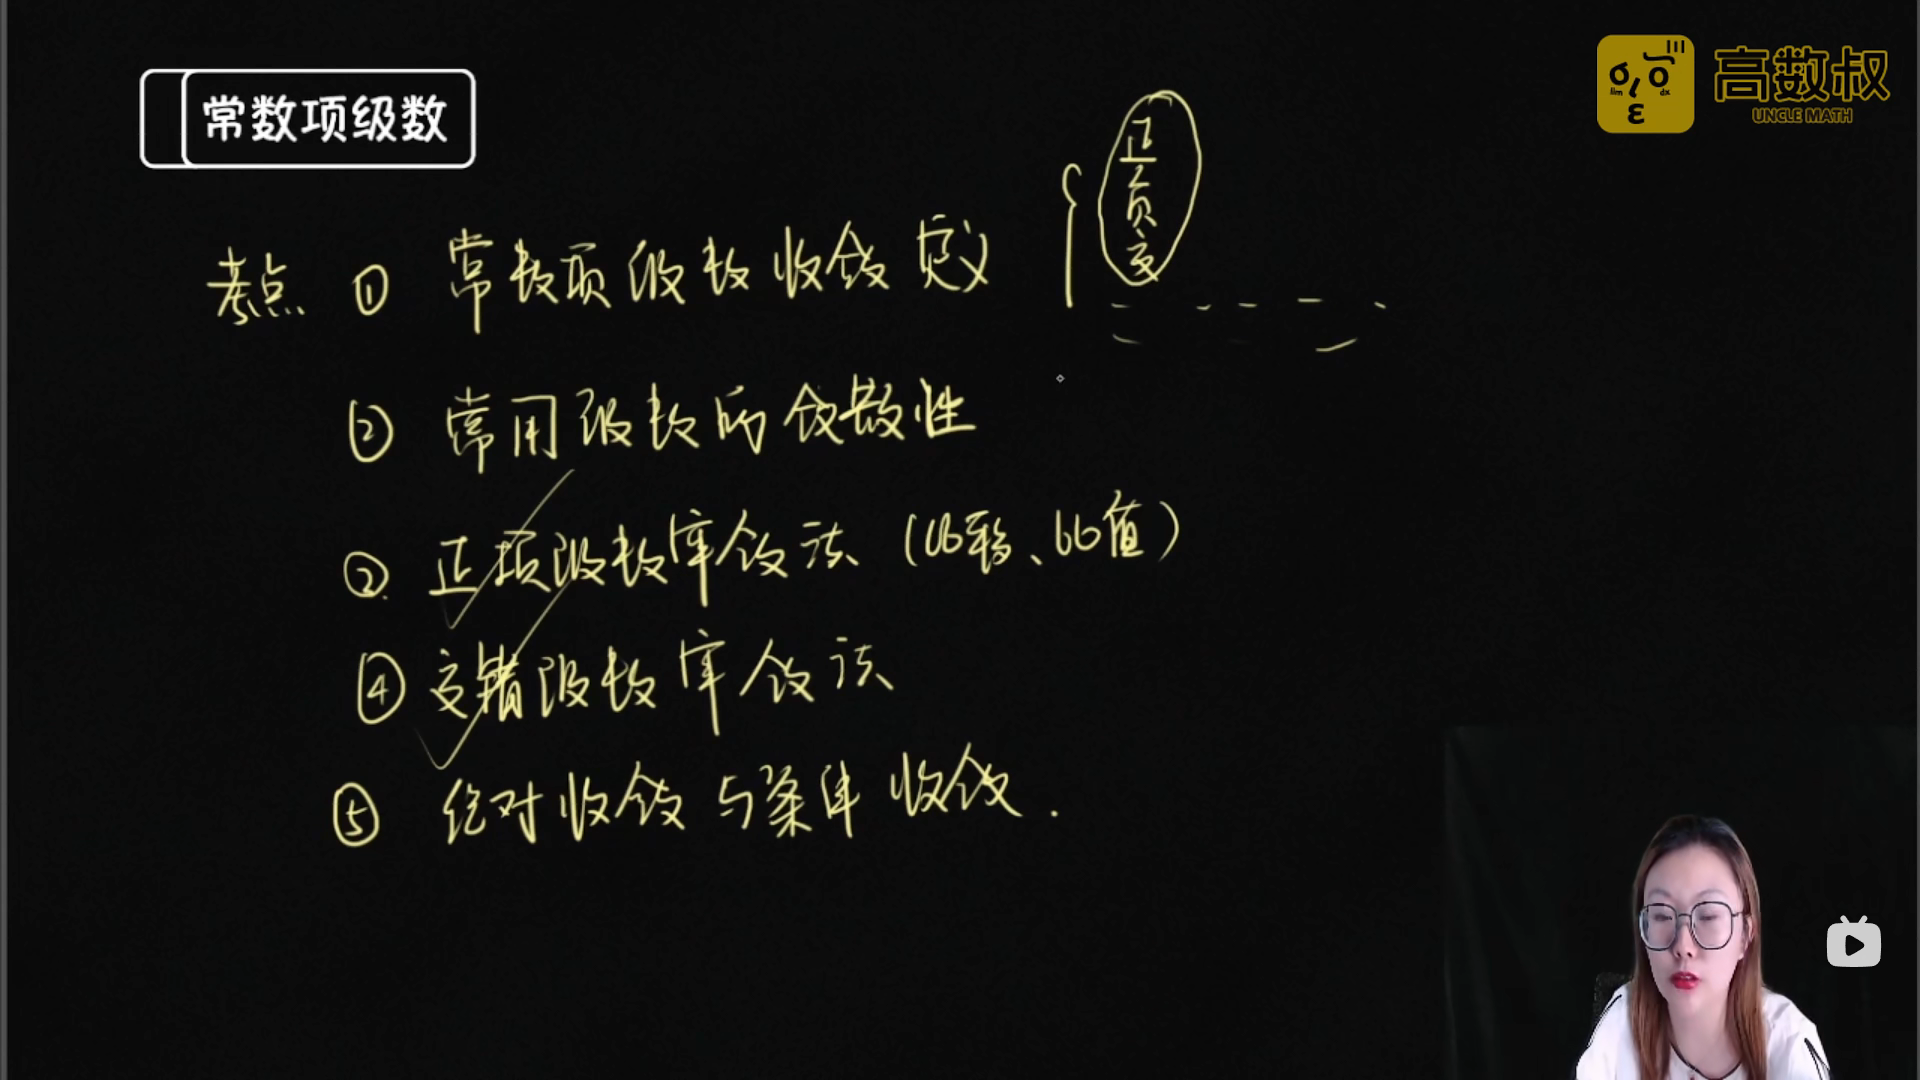 常数项级数
高数叔
UNCLE MATH
lim
dx
正
负
交
考点 ① 常数项级数收敛定义
② 常用级数的敛散性
③ 正项级数审敛法（比较、比值）
④ 交错级数审敛法
⑤ 绝对收敛与条件收敛.